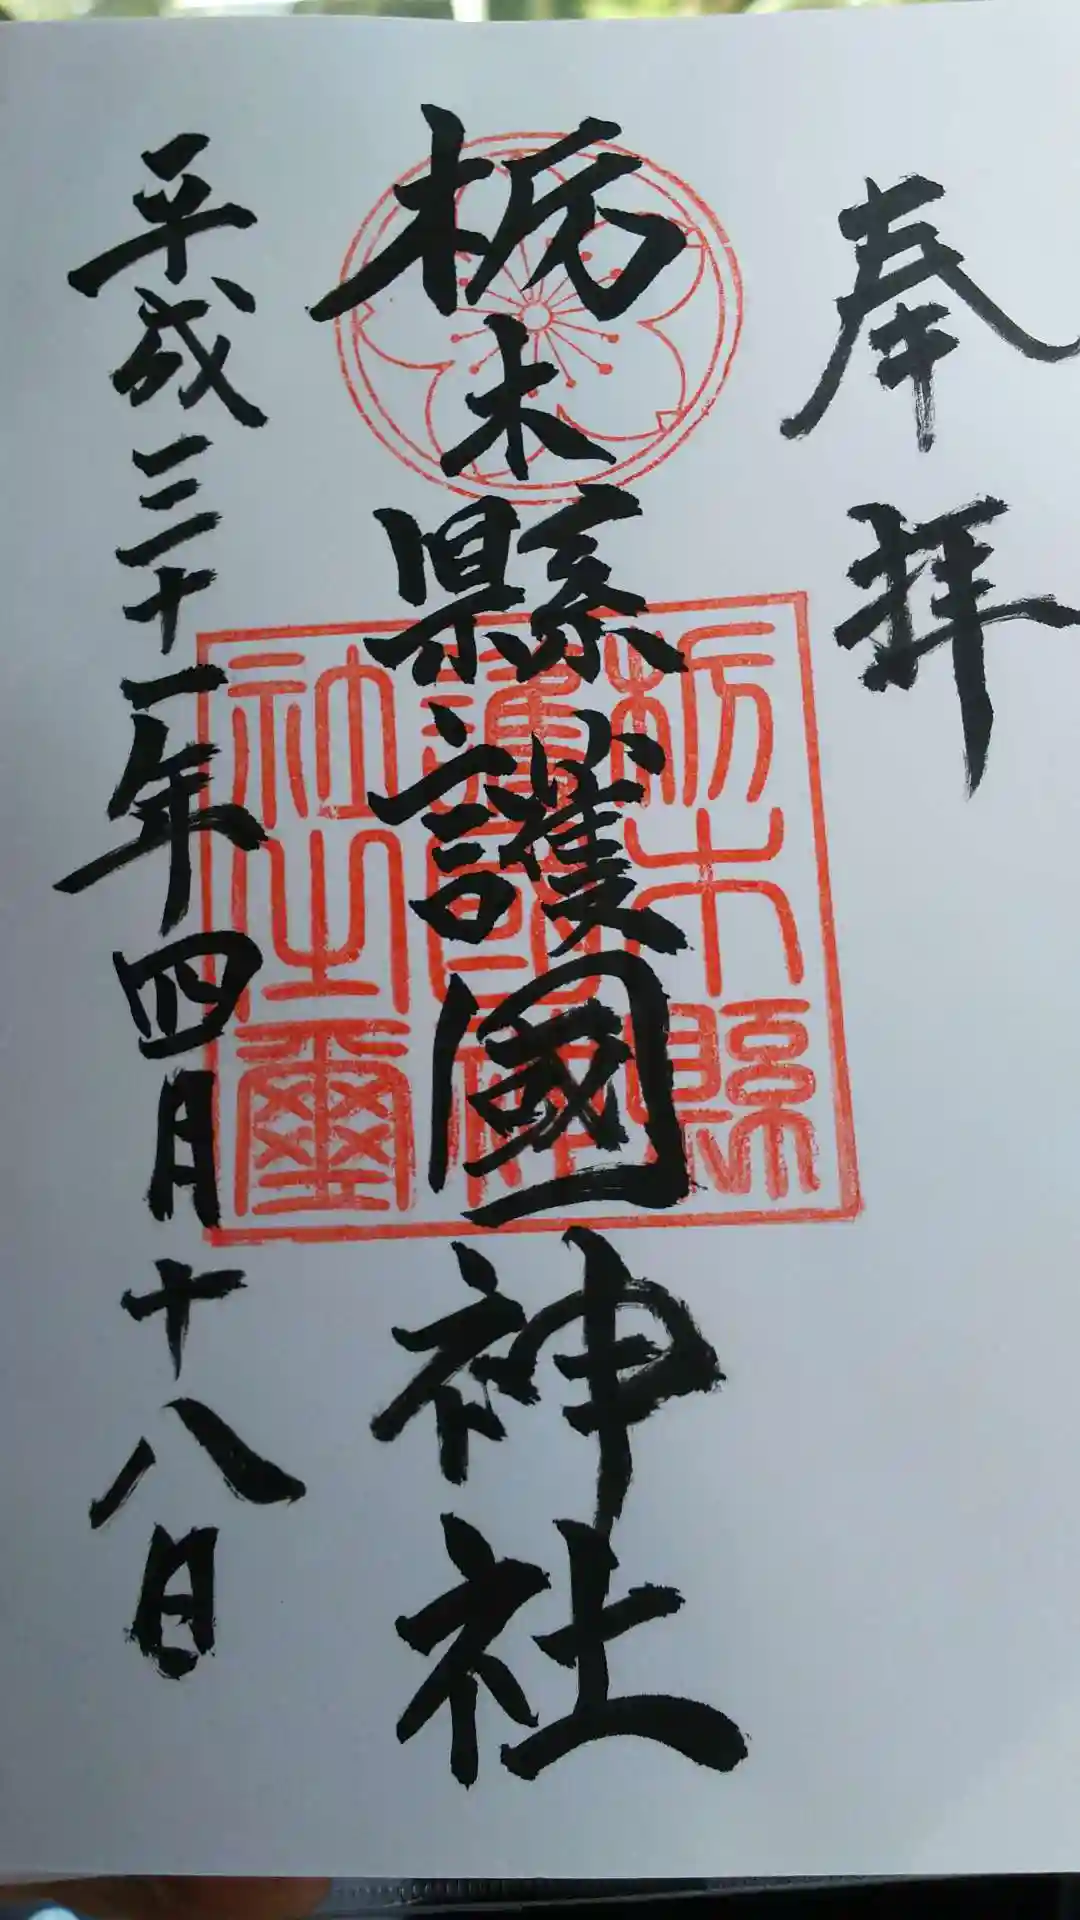 奉拝
栃木縣護國神社
栃木縣
護國神
社之璽
平成三十一年四月十八日